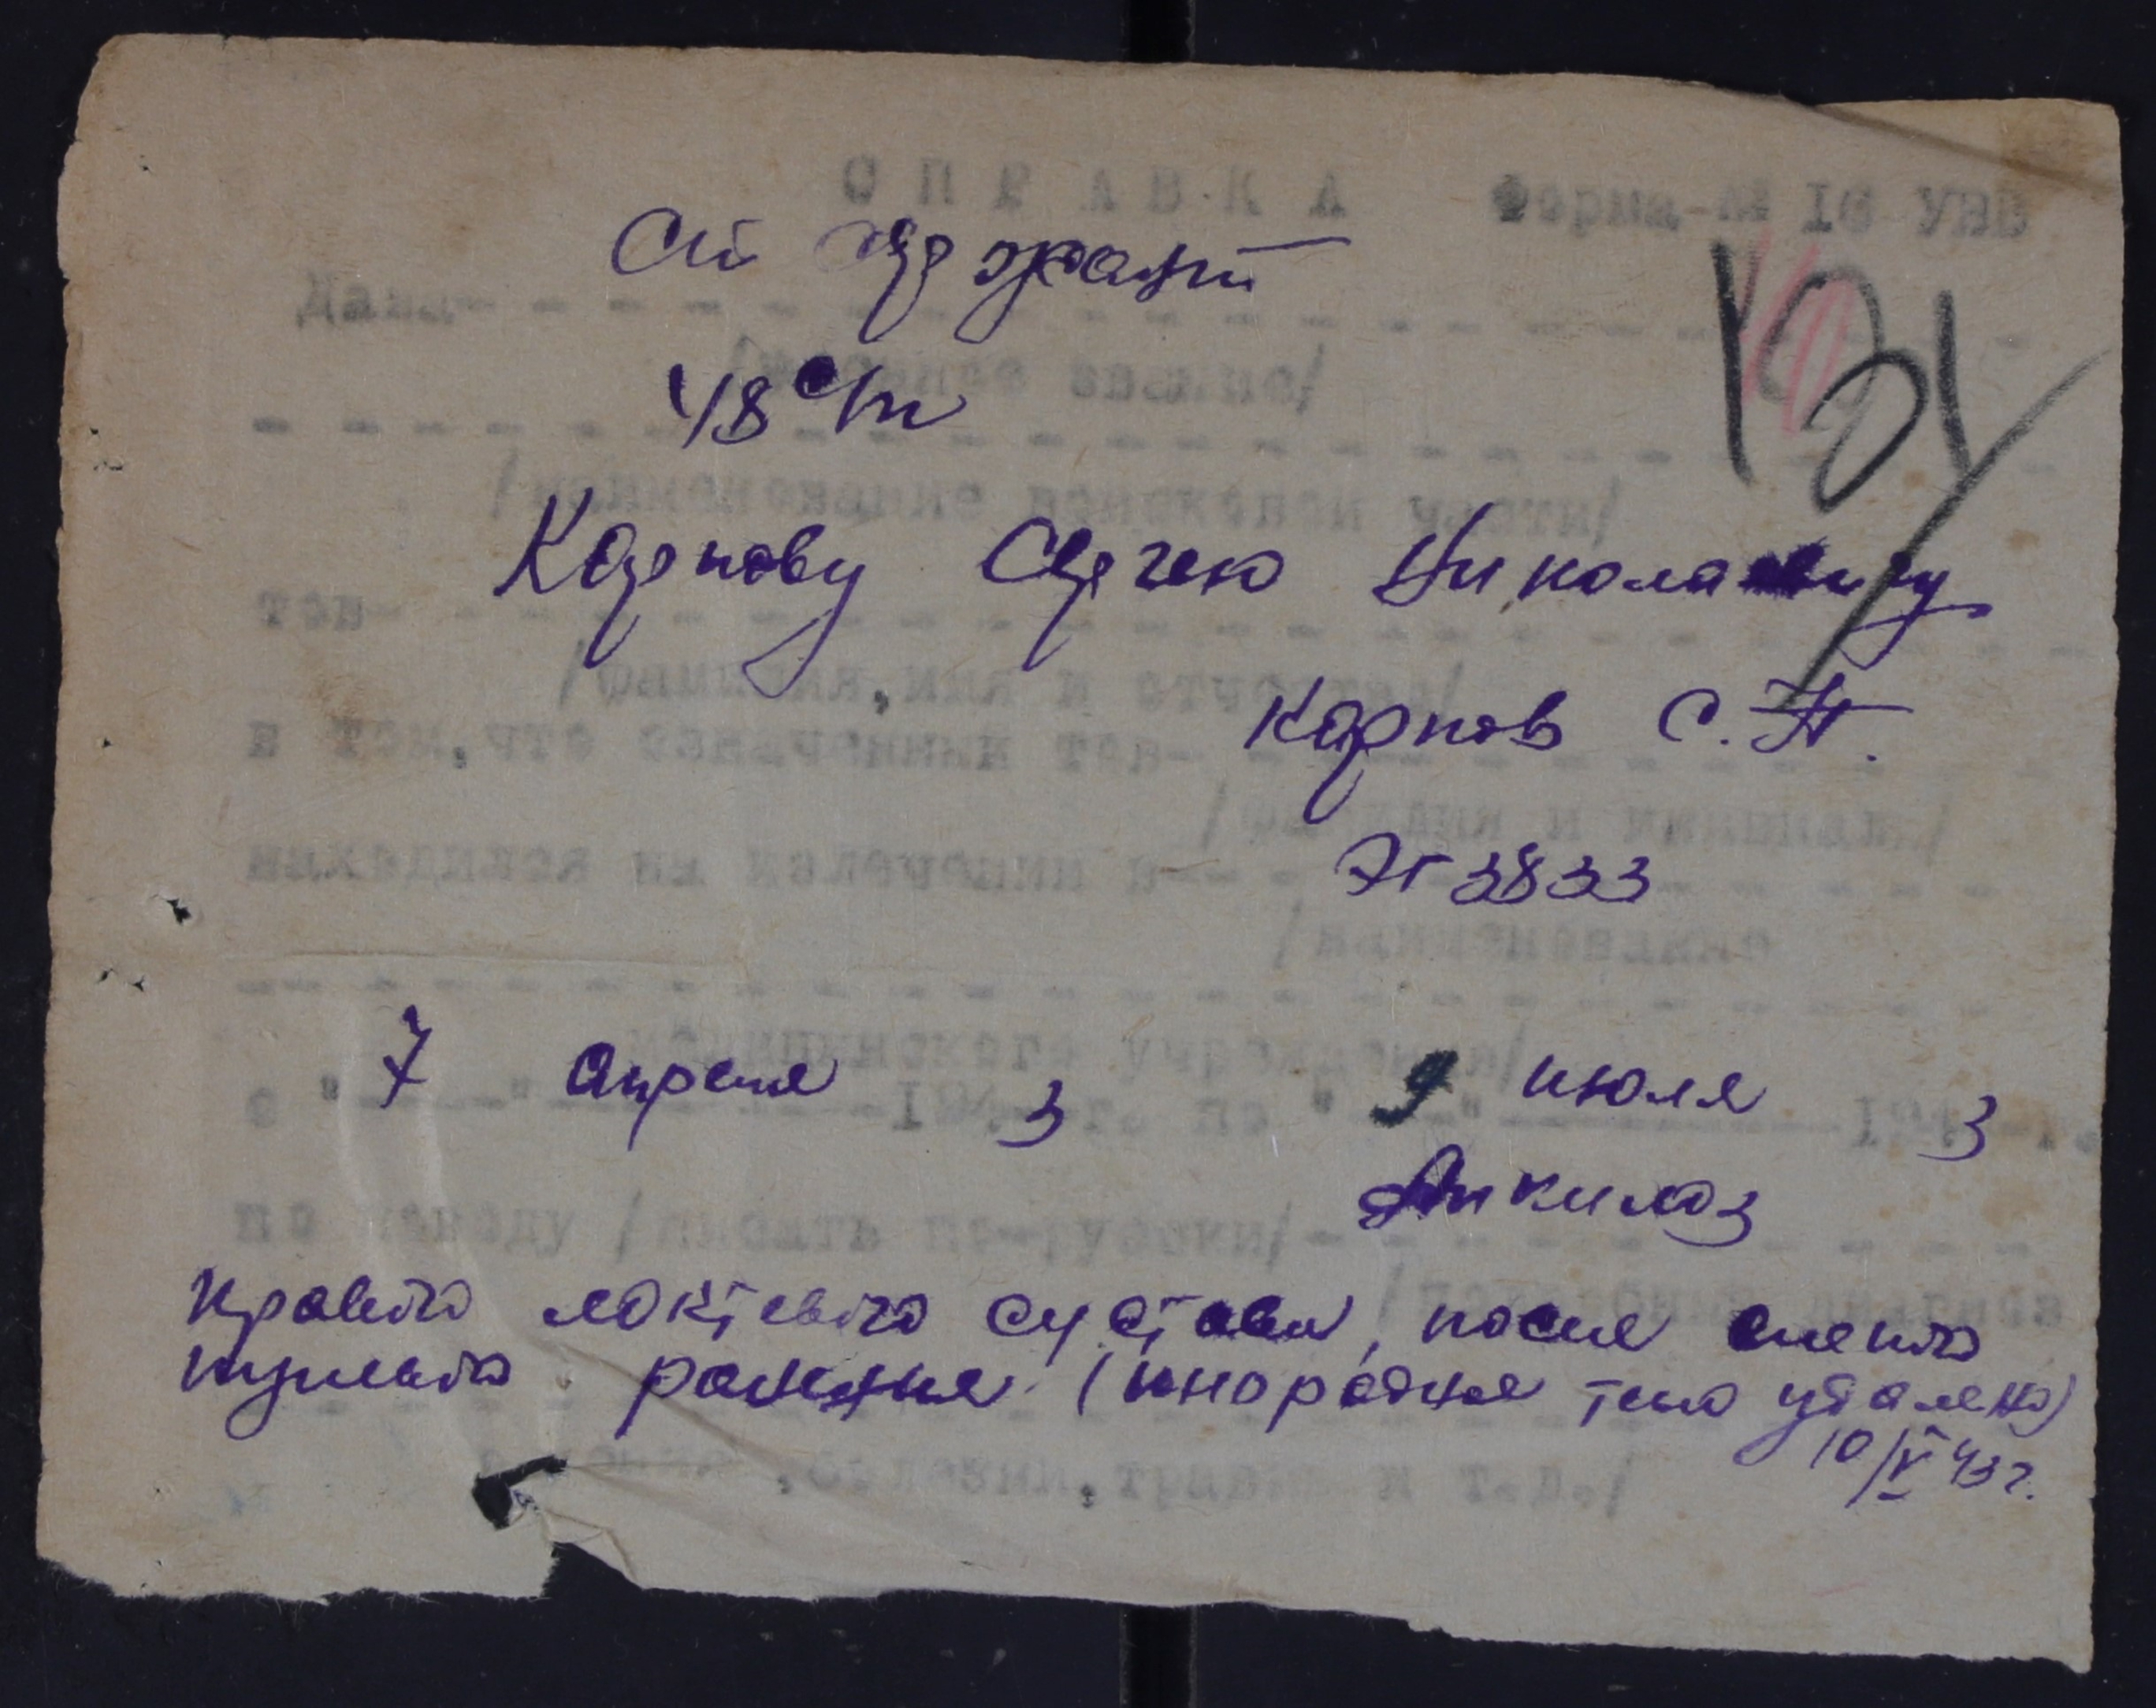 СПРАВКА Форма № 16 УВВ
Ст сержант
Дана
/военное звание/
48 с/п
/наименование воинской части/
Карпову Сергею Николаевичу
тов-
/фамилия, имя и отчество/
Карпов С. Н.
в том, что означенный тов-
/фамилия и инициалы/
находился на излечении в- ЭГ 3833
/наименование
медицинского учреждения/
с "7" апреля 1943 г. по "9" июля 1943 г.
Анкилоз
по поводу /писать по-русски/
/подробный диагноз
правого локтевого сустава, после слепого
пулевого ранения (инородное тело удалено)
10/V 43 г.
болезни, травмы и т.д./